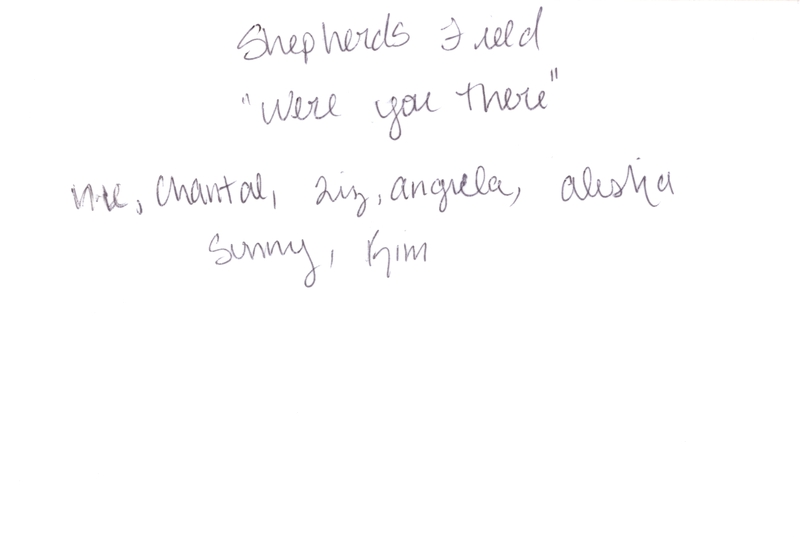 Shepherds Field
"Were you there"
me, Chantal, Liz, angiela, alesha
Sunny, Kim